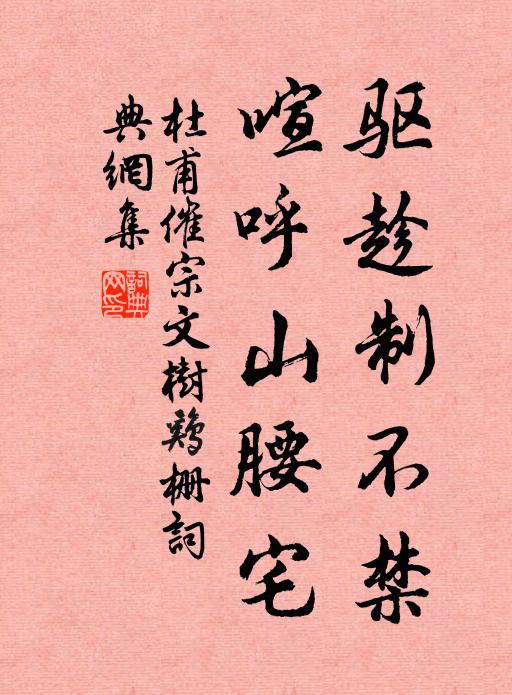 驱趁制不禁
喧呼山腰宅
杜甫催宗文樹鷄栅詞
典網集
詞典网印